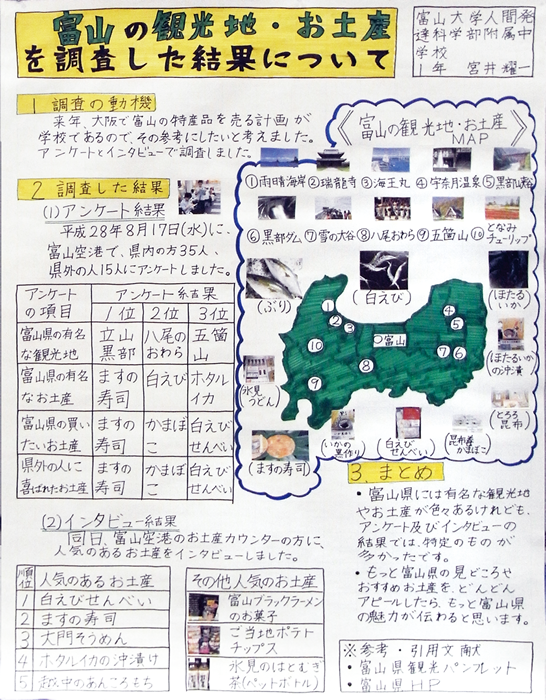 富山の観光地・お土産
を調査した結果について
富山大学人間発
達科学部附属中
学校
1年 宮井 耀一
1 調査の動機
来年、大阪で富山の特産品を売る計画が
学校であるので、その参考にしたいと考えました。
アンケートとインタビューで調査しました。
2 調査した結果
(1)アンケート結果
平成28年8月17日(水)に、
富山空港で、県内の方35人、
県外の人15人にアンケートしました。
アンケートの項目 アンケート結果
1位 2位 3位
富山県の有名な観光地 立山黒部 八尾のおわら 五箇山
富山県の有名なお土産 ますの寿司 白えび ホタルイカ
富山県の買いたいお土産 ますの寿司 かまぼこ 白えびせんべい
県外の人に喜ばれたお土産 ますの寿司 かまぼこ 白えびせんべい
(2)インタビュー結果
同日、富山空港のお土産カウンターの方に、
人気のあるお土産をインタビューしました。
順位 人気のあるお土産
1 白えびせんべい
2 ますの寿司
3 大門そうめん
4 ホタルイカの沖漬け
5 越中のあんころもち
その他人気のお土産
富山ブラックラーメン
のお菓子
ご当地ポテト
チップス
氷見のはとむぎ
茶(ペットボトル)
《富山の観光地・お土産
MAP》
①雨晴海岸 ②瑞龍寺 ③海王丸 ④宇奈月温泉 ⑤黒部峡谷
⑥黒部ダム ⑦雪の大谷 ⑧八尾おわら ⑨五箇山 ⑩となみチューリップ
(ぶり)
(白えび)
(ほたるいか)
1
2
3
4
5
富山
10
7
6
8
9
(ほたるいかの沖漬)
(氷見うどん)
(とろろ昆布)
(ますの寿司)
(いかの黒作り)
(白えびせんべい)
(昆布巻かまぼこ)
3. まとめ
・富山県には有名な観光地
やお土産が色々あるけれども、
アンケート及びインタビューの
結果では、特定のものが
多かったです。
・もっと富山県の見どころや
おすすめお土産を、どんどん
アピールしたら、もっと富山県
の魅力が伝わると思います。
※参考・引用文献
・富山県観光パンフレット
・富山県HP